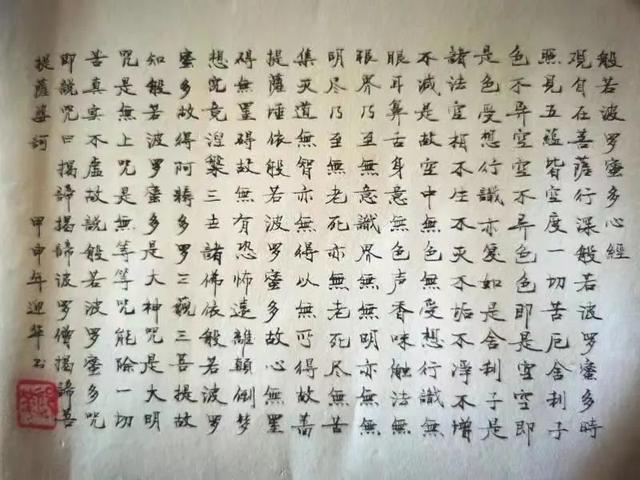 般若波罗蜜多心經
觀自在菩薩行深般若波罗蜜多時
照見五蘊皆空度一切苦厄舍利子
色不异空空不异色色即是空空即
是色受想行識亦复如是舍利子是
諸法空相不生不灭不垢不淨不增
不減是故空中無色無受想行識無
眼耳鼻舌身意無色声香味触法無
眼界乃至無意識界無無明亦無無
明尽乃至無老死亦無老死尽無苦
集灭道無智亦無得以無所得故菩
提薩埵依般若波罗蜜多故心無罣
碍無罣碍故無有恐怖遠離顛倒梦
想究竟涅槃三世諸佛依般若波罗
蜜多故得阿耨多罗三藐三菩提故
知般若波罗蜜多是大神咒是大明
咒是無上咒是無等等咒能除一切
苦真实不虛故説般若波罗蜜多咒
即説咒曰揭諦揭諦波罗僧揭諦菩
提薩婆訶 甲申年迎华书